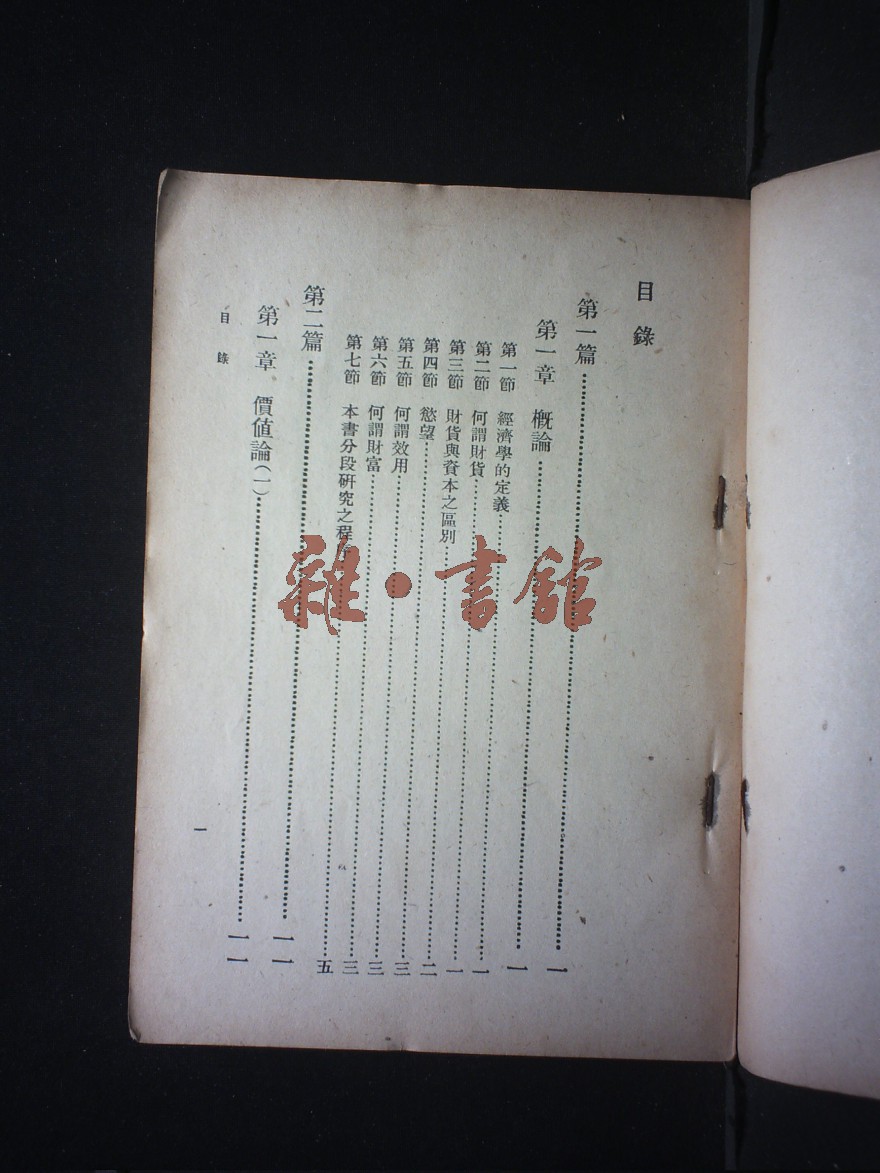 目錄
第一篇……一
第一章 概論……一
第一節 經濟學的定義……一
第二節 何謂財貨……一
第三節 財貨與資本之區別……二
第四節 慾望……三
第五節 何謂效用……三
第六節 何謂財富……三
第七節 本書分段研究之程序……五
第二篇……一一
第一章 價值論(一)……一一
目錄
一
雜·書館